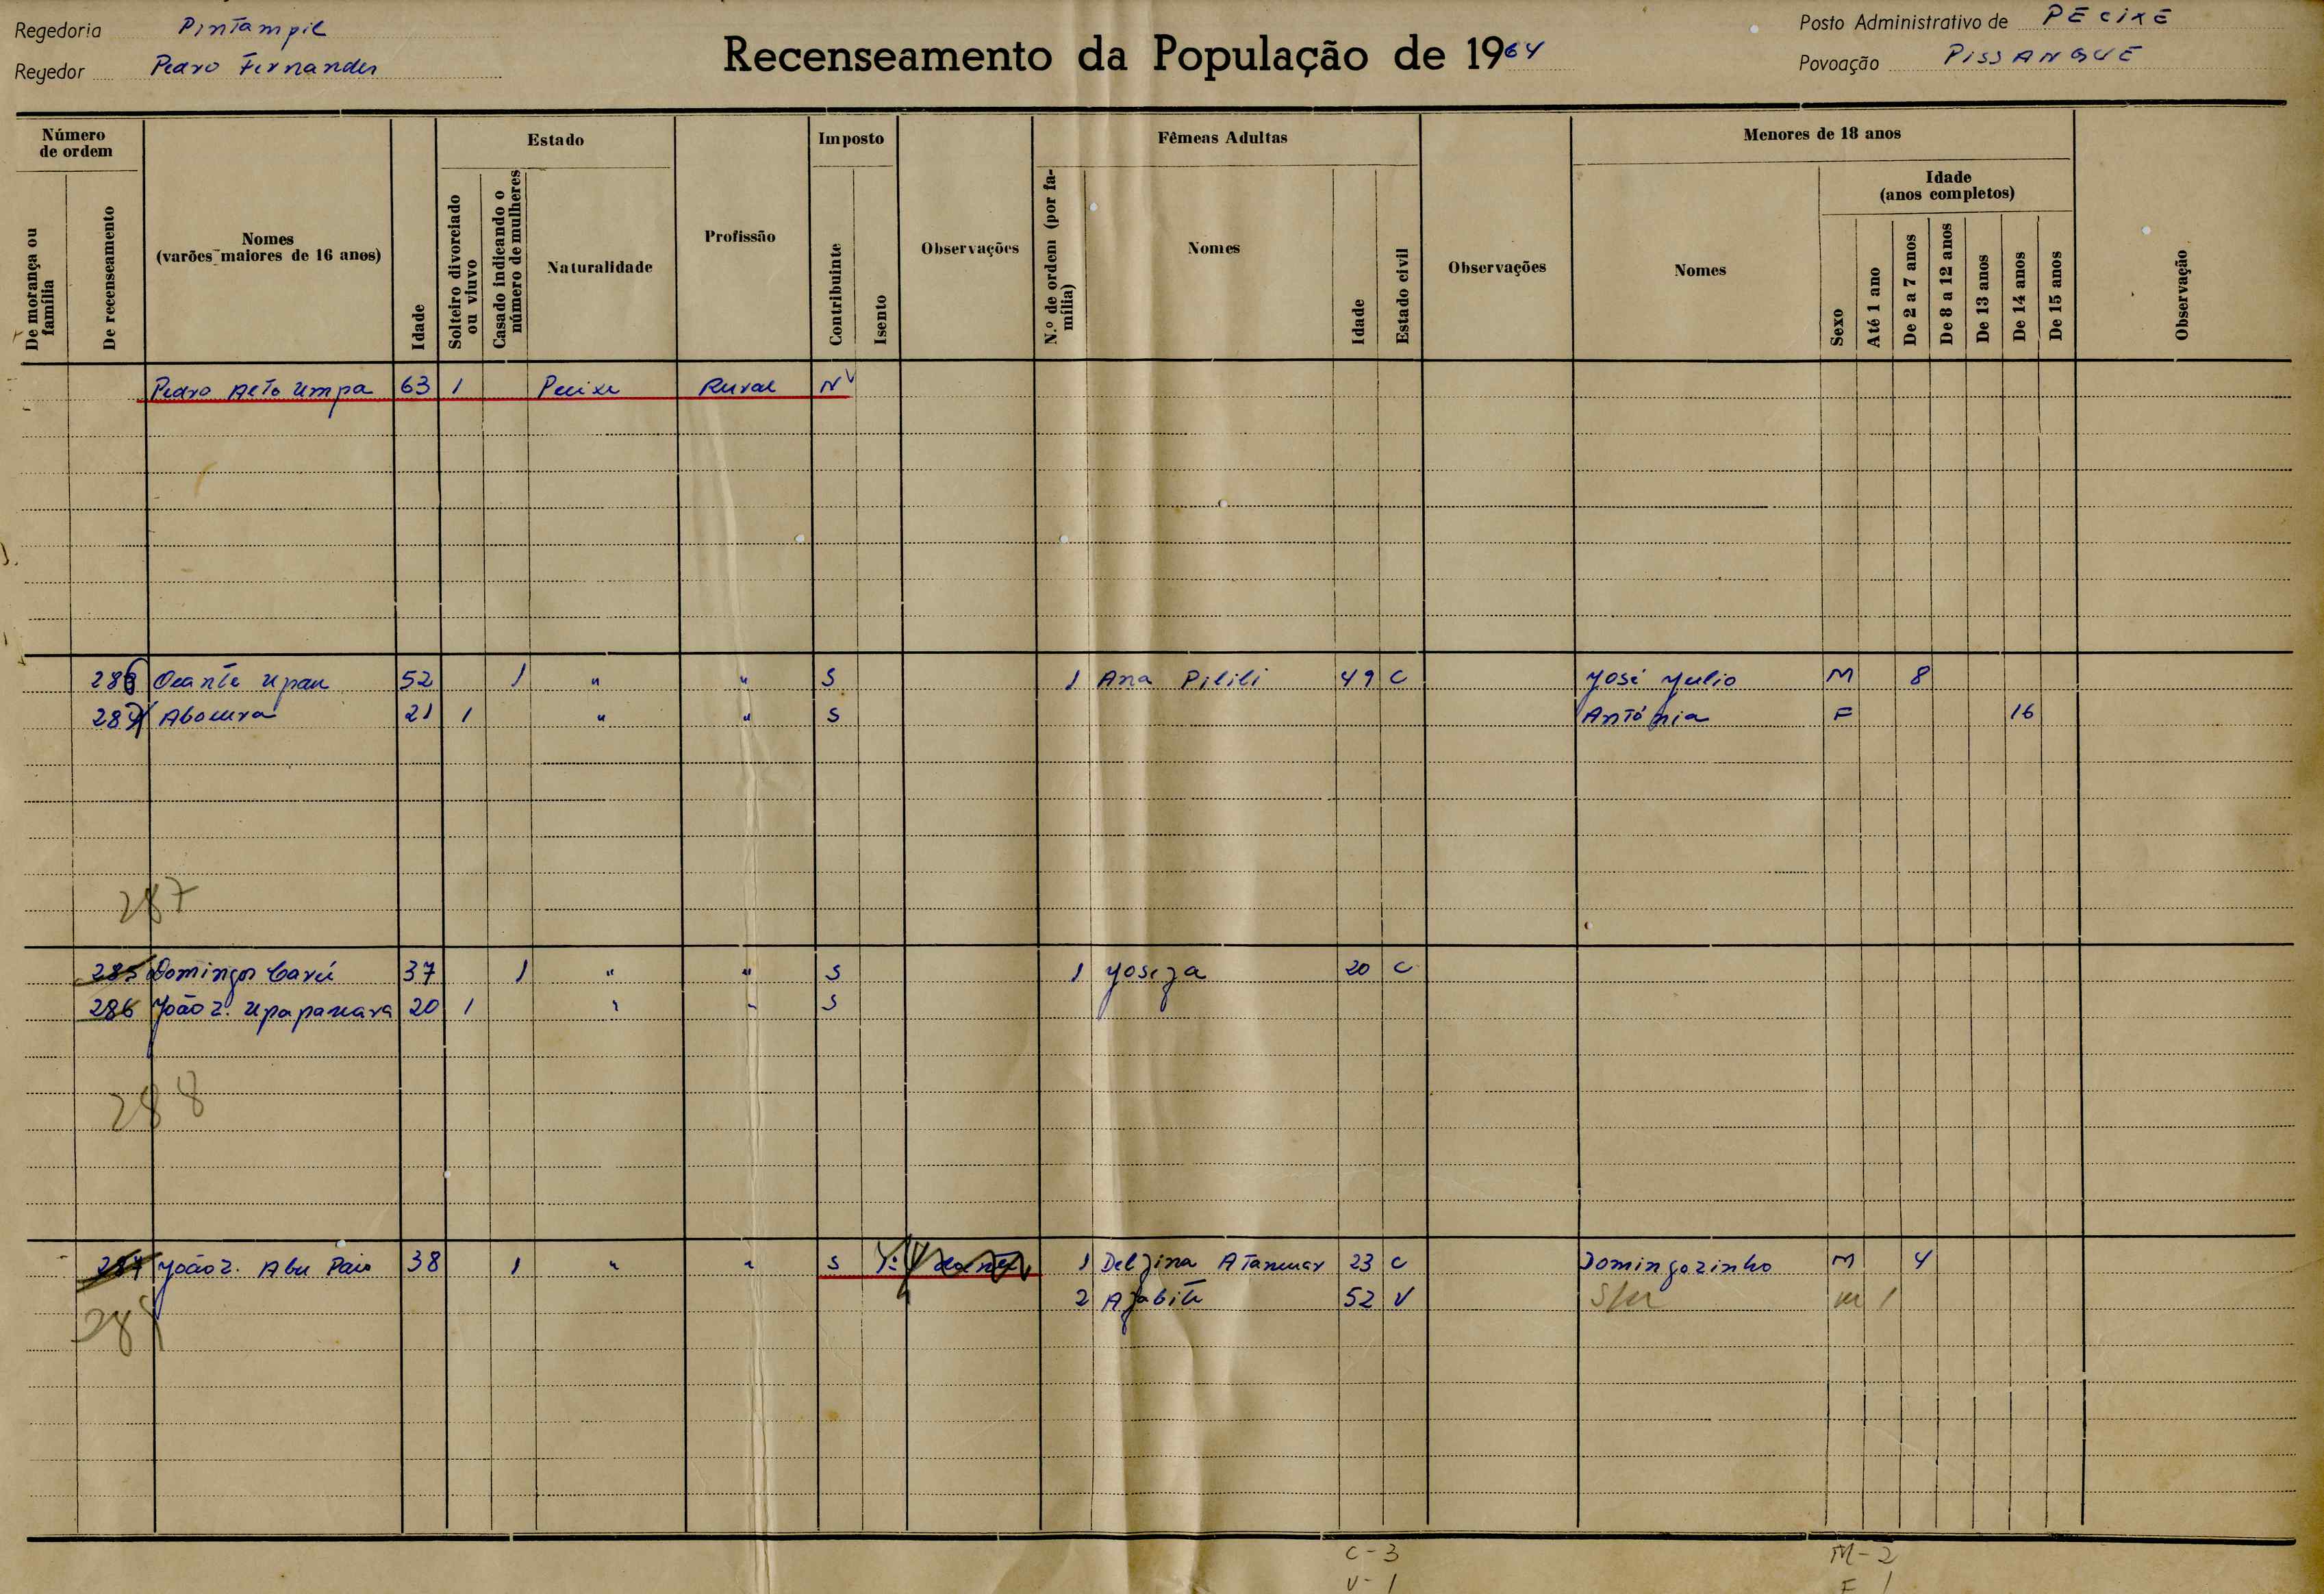 Regedoria Pintampil
Regedor Pedro Fernandes
Recenseamento da População de 1964
Posto Administrativo de PECIXE
Povoação PISSANGUE
Número de ordem
De morança ou família
De recenseamento
Nomes (varões maiores de 16 anos)
Idade
Estado
Solteiro divorciado ou viuvo
Casado indicando o número de mulheres
Naturalidade
Profissão
Imposto
Contribuinte
Isento
Observações
Fêmeas Adultas
N.º de ordem (por família)
Nomes
Idade
Estado civil
Observações
Menores de 18 anos
Nomes
Idade (anos completos)
Sexo
Até 1 ano
De 2 a 7 anos
De 8 a 12 anos
De 13 anos
De 14 anos
De 15 anos
Observação
Pedro Alto Umpa 63 1 Pecixe Rural N
Ocante Upau 52 1 " " S 1 Ana Pilili 49 C José Julio M 8
21 1 " " S Antónia F 16
287
285 Domingos Carú 37 1 " " S 1 Josefa 20 C
286 João Z. 20 1 " " S
288
João Z. Abu Paio 38 1 " " S 1 Delfina 23 C Domingozinho M 4
2 Afabite 52 V S/n m 1
C - 3
V - 1
M - 2
F 1